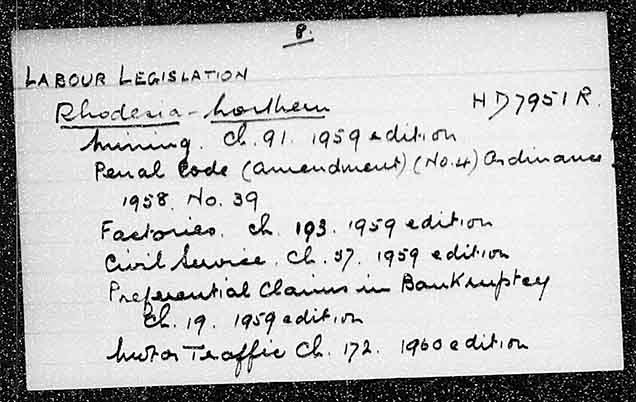 8.
LABOUR LEGISLATION
Rhodesia - Northern HD7951R.
Mining. Ch. 91. 1959 edition
Penal Code (Amendment) (No. 4) Ordinance
1958. No. 39
Factories. Ch. 193. 1959 edition
Civil Service. Ch. 37. 1959 edition
Preferential Claims in Bankruptcy
Ch. 19. 1959 edition
Motor Traffic Ch. 172. 1960 edition